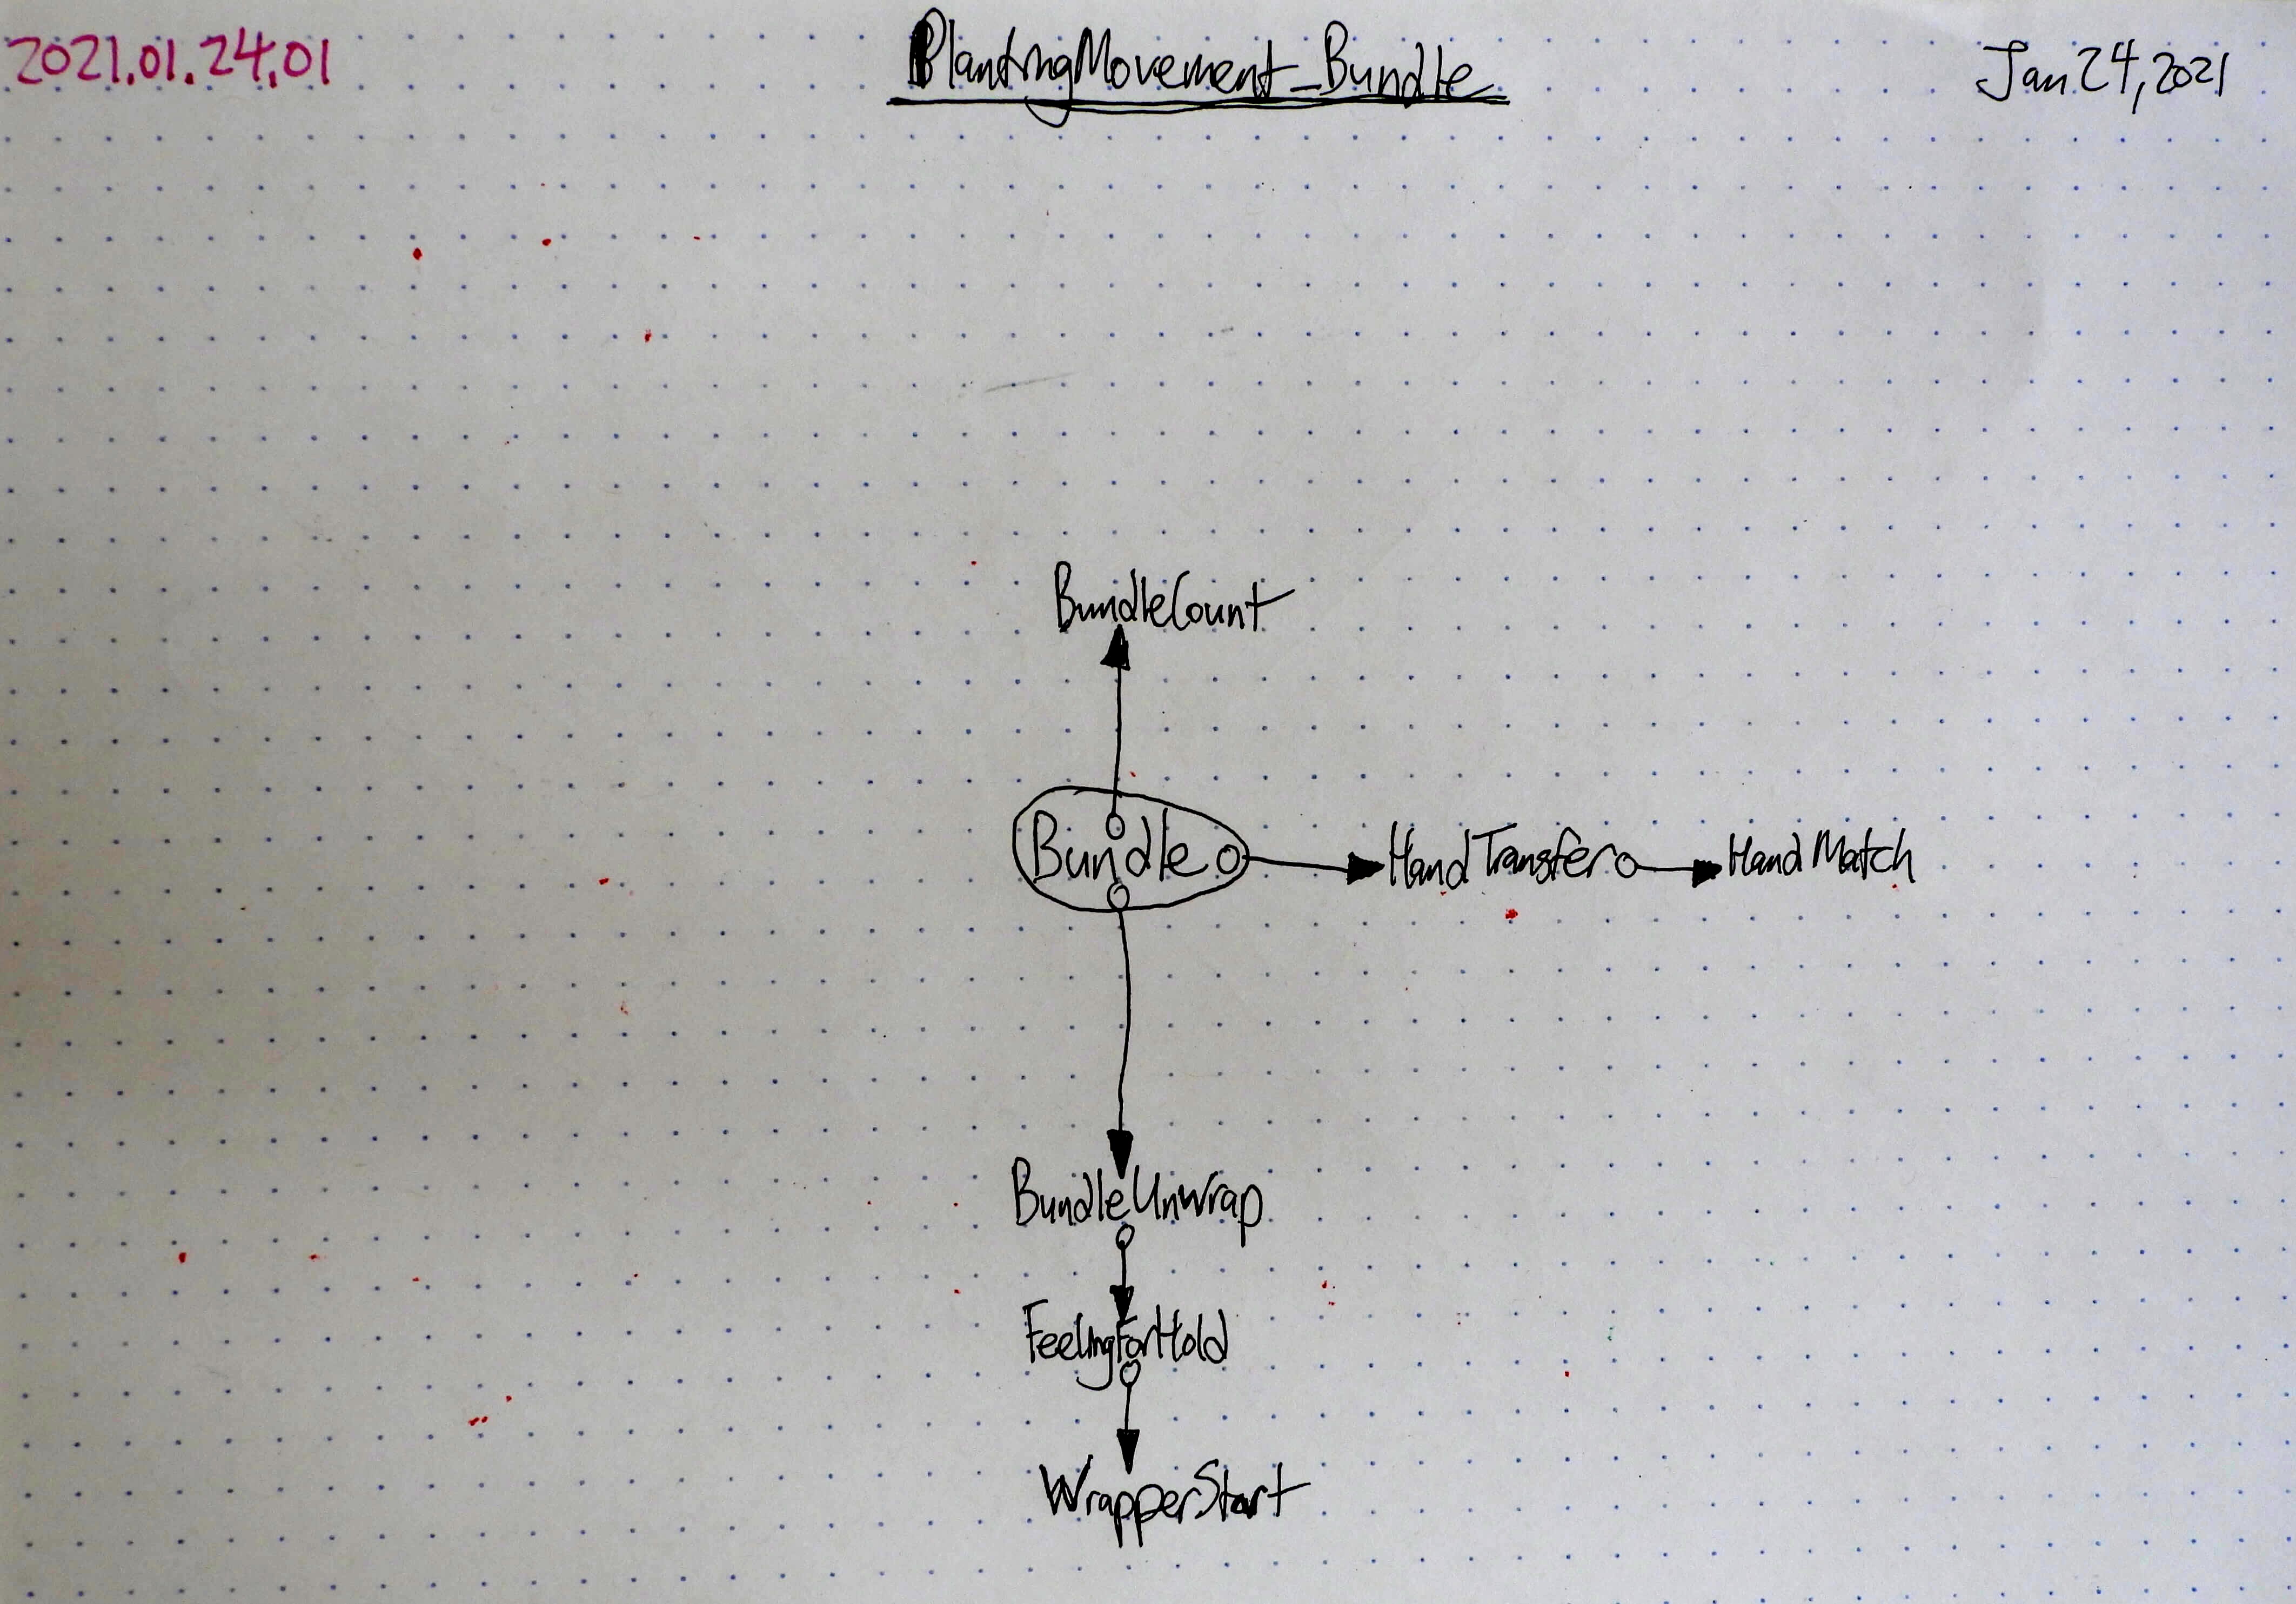 2021.01.24.01
PlantingMovement_Bundle
Jan 24, 2021
BundleCount
Bundle
HandTransfer
HandMatch
BundleUnwrap
FeelingForHold
WrapperStart